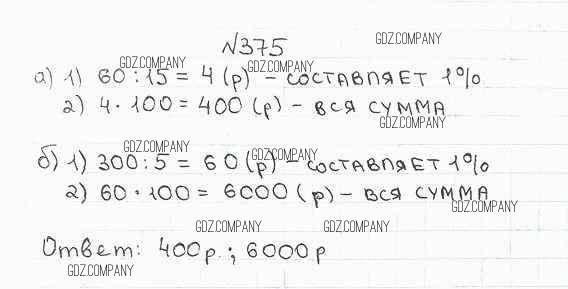 №375
GDZ.COMPANY
GDZ.COMPANY GDZ.COMPANY
а) 1) 60 : 15 = 4 (р) – СОСТАВЛЯЕТ 1%
2) 4 · 100 = 400 (р) – ВСЯ СУММА
GDZ.COMPANY
GDZ.COMPANY GDZ.COMPANY
б) 1) 300 : 5 = 60 (р) – СОСТАВЛЯЕТ 1%
2) 60 · 100 = 6000 (р) – ВСЯ СУММА
GDZ.COMPANY
GDZ.COMPANY GDZ.COMPANY
Ответ: 400р.; 6000р
GDZ.COMPANY